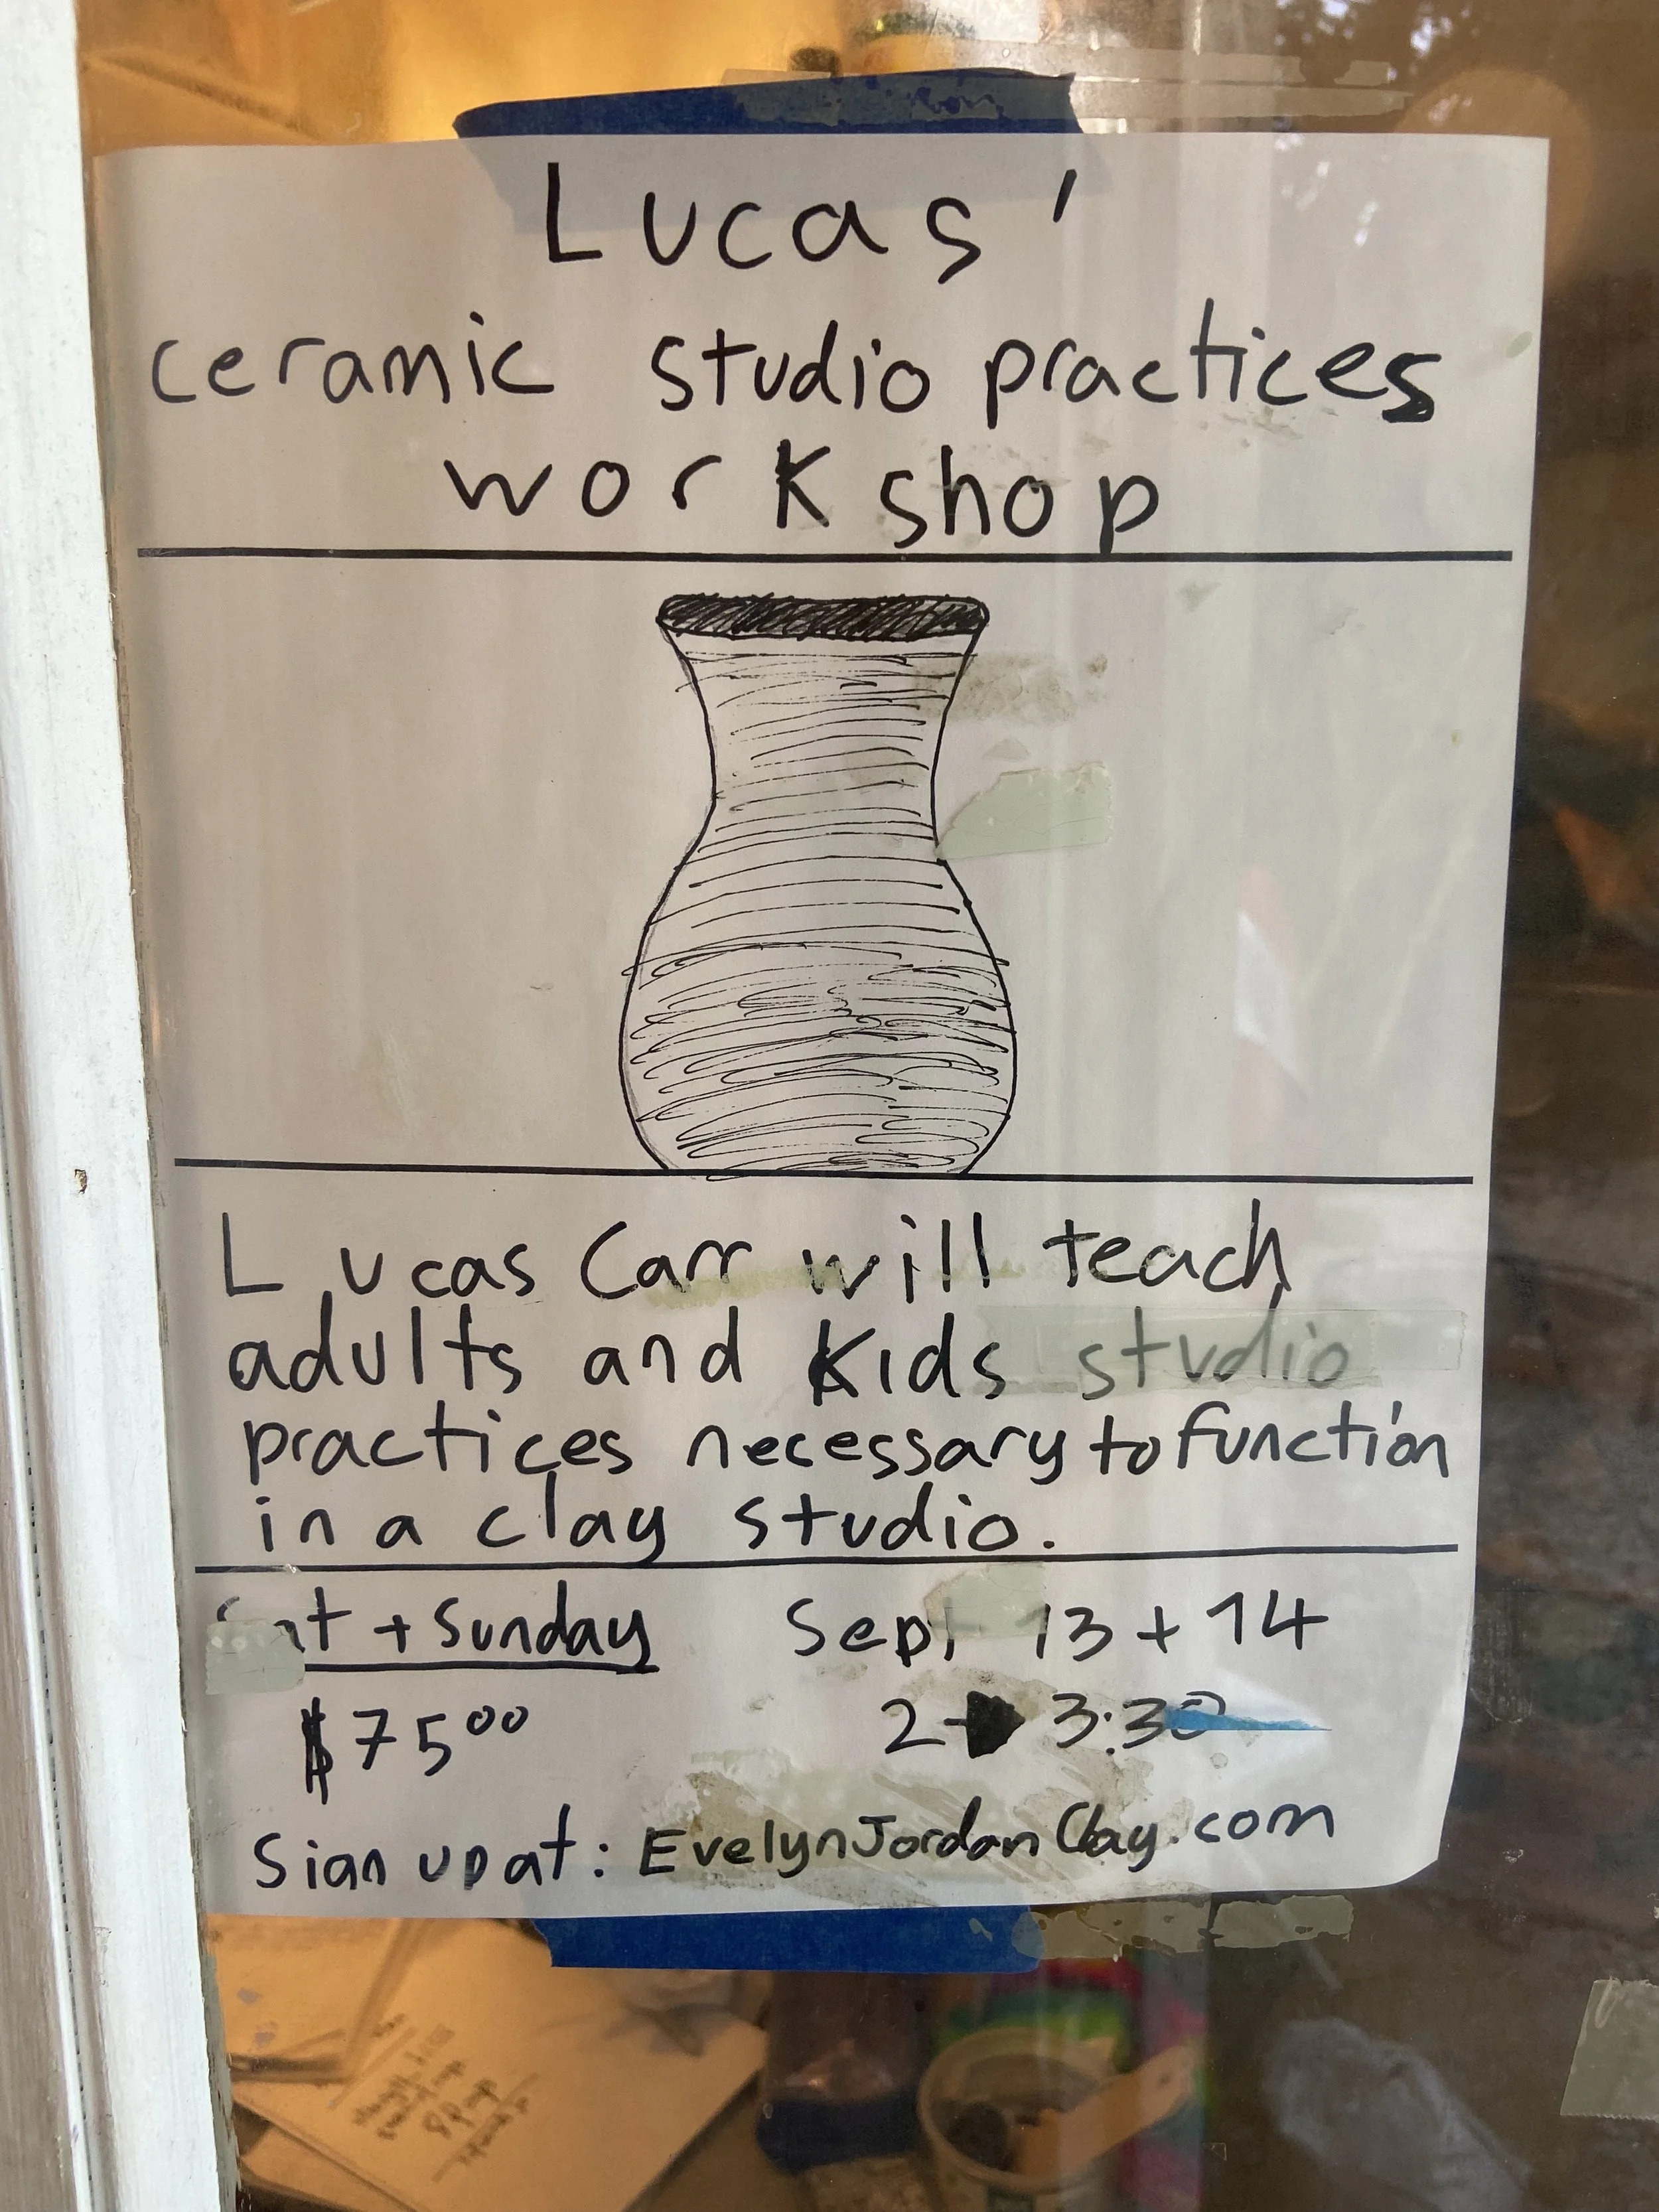 Lucas'
ceramic studio practices
workshop
Lucas Carr will teach
adults and Kids studio
practices necessary to function
in a clay studio.
Sat + Sunday Sept 13 + 14
$75⁰⁰ 2→3:30
Sign up at: EvelynJordanClay.com